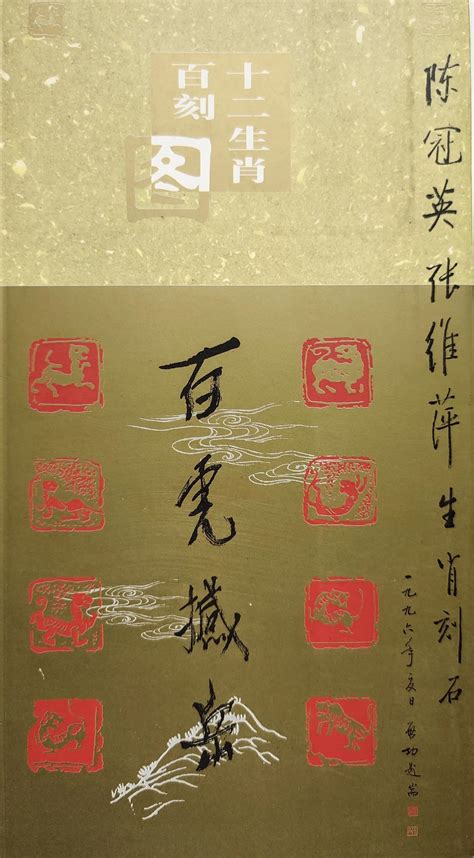 陈冠英张维萍生肖刻石
一九九六年夏日 启功题耑
十二生肖
百刻图
百虎撼岳